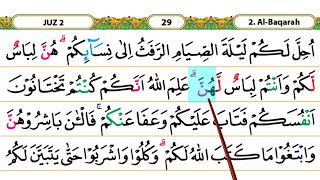 JUZ 2
29
2. Al-Baqarah
اُحِلَّ لَكُمْ لَيْلَةَ الصِّيَامِ الرَّفَثُ اِلٰى نِسَاۤىِٕكُمْ ۗ هُنَّ لِبَاسٌ
لَّكُمْ وَاَنْتُمْ لِبَاسٌ لَّهُنَّ ۗ عَلِمَ اللّٰهُ اَنَّكُمْ كُنْتُمْ تَخْتَانُوْنَ
اَنْفُسَكُمْ فَتَابَ عَلَيْكُمْ وَعَفَا عَنْكُمْ ۚ فَالْـٰٔنَ بَاشِرُوْهُنَّ
وَابْتَغُوْا مَا كَتَبَ اللّٰهُ لَكُمْ ۗ وَكُلُوْا وَاشْرَبُوْا حَتّٰى يَتَبَيَّنَ لَكُمُ